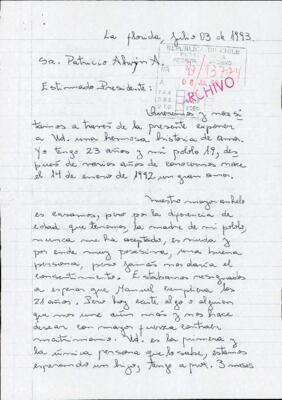 La florida, Julio 03 de 1993.
REPUBLICA DE CHILE
93/13721
ARCHIVO
Sr. Patricio Alwyn A.
Estimado Presidente:
Queremos y necesi
tamos a través de la presente exponer
a Ud. una hermosa historia de amor.
Yo tengo 23 años y mi pololo 19, des
pués de varios años de conocernos nace
el 14 de enero de 1992 un gran amor.
Nuestro mayor anhelo
es casarnos, pero por la diferencia de
edad que tenemos, la madre de mi pololo,
nunca me ha aceptado, es viuda y
por ende muy posesiva, una buena
persona, pero jamás nos daría el
consentimiento. Estabamos resignados
a esperar que Manuel cumpliera los
21 años. Pero hoy existe algo o alguien
que nos une aún más y nos hace
desear con mayor fuerza contraer
matrimonio. Ud. es la primera y
la única persona que lo sabe, estamos
esperando un hijo, tengo a pur. 3 meses